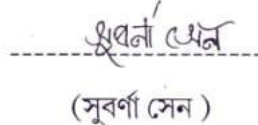 সুবর্ণা সেন
(সুবর্ণা সেন)